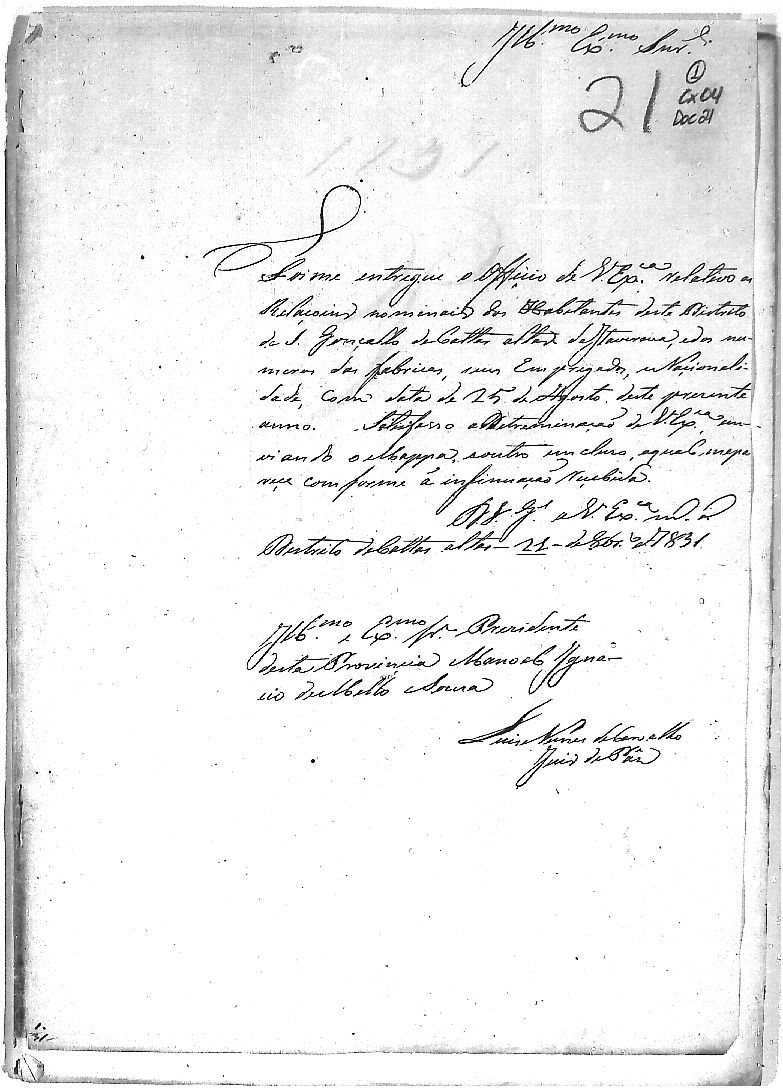 Ill.mo Ex.mo Snr.
21
1
Cx04
Doc21
Foi me entregue o Officio de V Ex.ca relativo as
Relaçoins nominais dos Habitantes deste Districto
de S. Gonçallo de Cattas altas de Itaverava, e dos nu-
meros das fabricas, seus Empregados, e Nacionali-
dade, com data de 25 de Agosto deste prezente
anno. Satisfasso a Detreminação de V. Ex.ca en-
viando o Mappa, e outro incluso, aqual mepa
reçe comforme á insinuação reçebida.
D.s G.e a V. Ex.ca m. a
Destrito de Cattas altas 21 de 8br.o de 1831
Ill.mo e Ex.mo Sr. Prezidente
desta Provincia Manoel Igna-
cio de Mello Souza
Luis Nunes de Carvalho
Juis de Páz